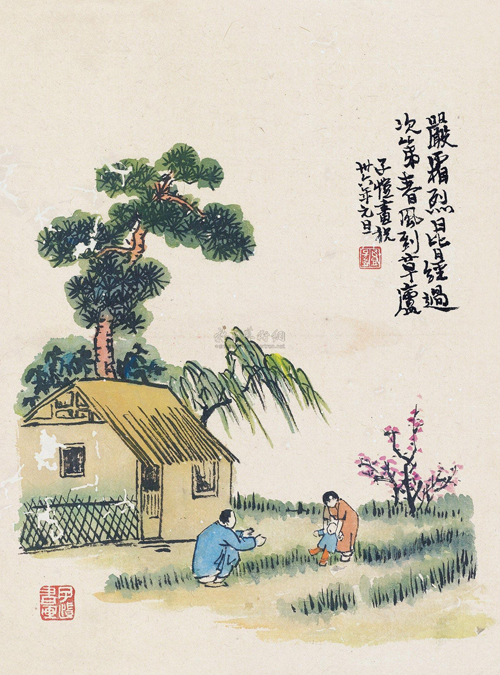 嚴霜烈日皆經過
次第春風到草廬
子愷畫祝
卅六年元旦
子愷
書畫